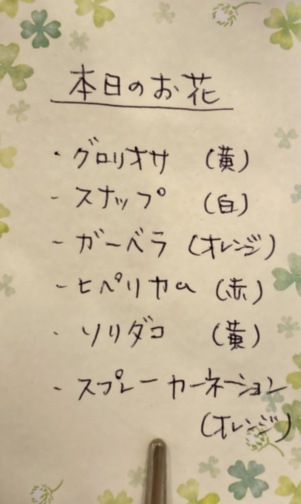 本日のお花
・グロリオサ (黄)
- スナップ (白)
- ガーベラ (オレンジ)
- ヒペリカム (赤)
・ソリダコ (黄)
- スプレーカーネーション
(オレンジ)